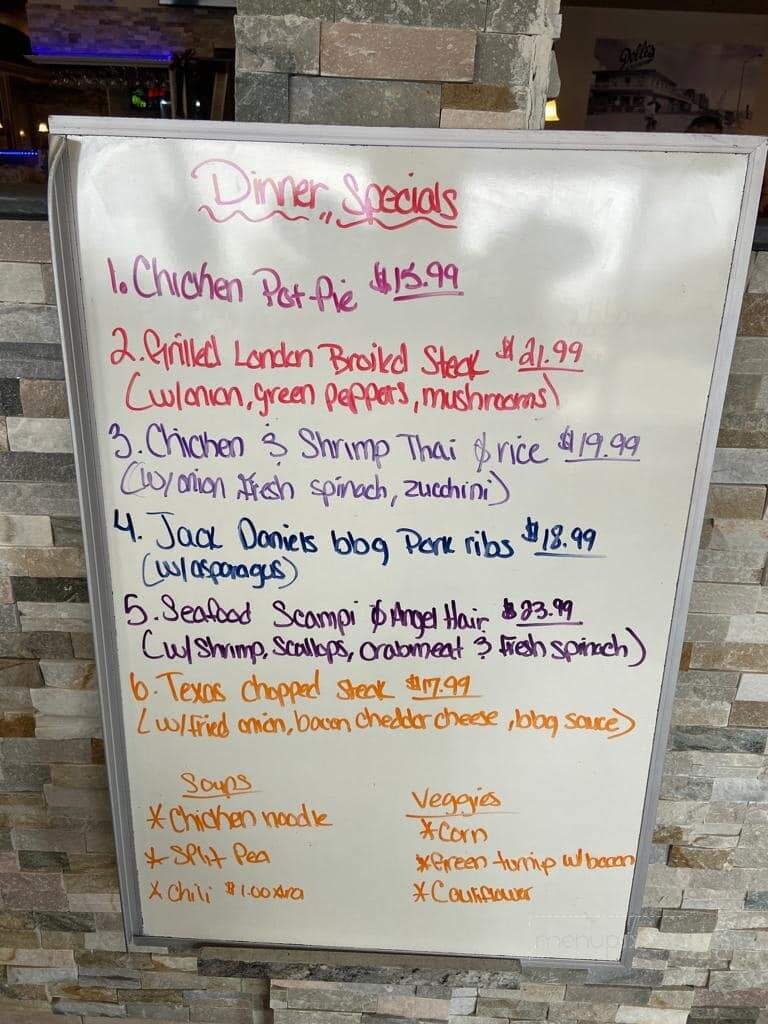 Pelli's
Dinner Specials
1. Chicken Pot-Pie $15.99
2. Grilled London Broiled Steak $21.99
(w/onion, green peppers, mushrooms)
3. Chicken & Shrimp Thai & rice $19.99
(w/onion fresh spinach, zucchini)
4. Jack Daniels bbq Pork ribs $18.99
(w/asparagus)
5. Seafood Scampi & Angel Hair $23.99
(w/Shrimp, Scallops, Crabmeat & fresh spinach)
6. Texas chopped steak $17.99
(w/fried onion, bacon cheddar cheese, bbq sauce)
Soups
*Chicken noodle
*Split Pea
*Chili $1.00 xtra
Veggies
*Corn
*Green turnip w/bacon
*Cauliflower